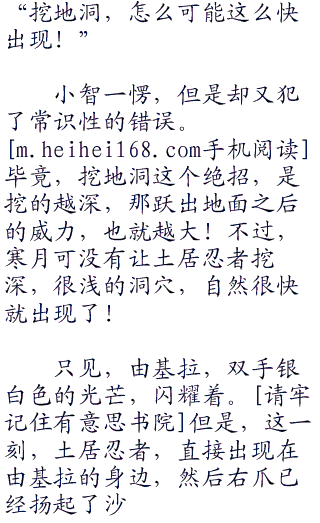 “挖地洞，怎么可能这么快
出现！”
小智一愣，但是却又犯
了常识性的错误。
[m.heihei168.com手机阅读]
毕竟，挖地洞这个绝招，是
挖的越深，那跃出地面之后
的威力，也就越大！不过，
寒月可没有让土居忍者挖
深，很浅的洞穴，自然很快
就出现了！
只见，由基拉，双手银
白色的光芒，闪耀着。[请牢
记住有意思书院]但是，这一
刻，土居忍者，直接出现在
由基拉的身边，然后右爪已
经扬起了沙